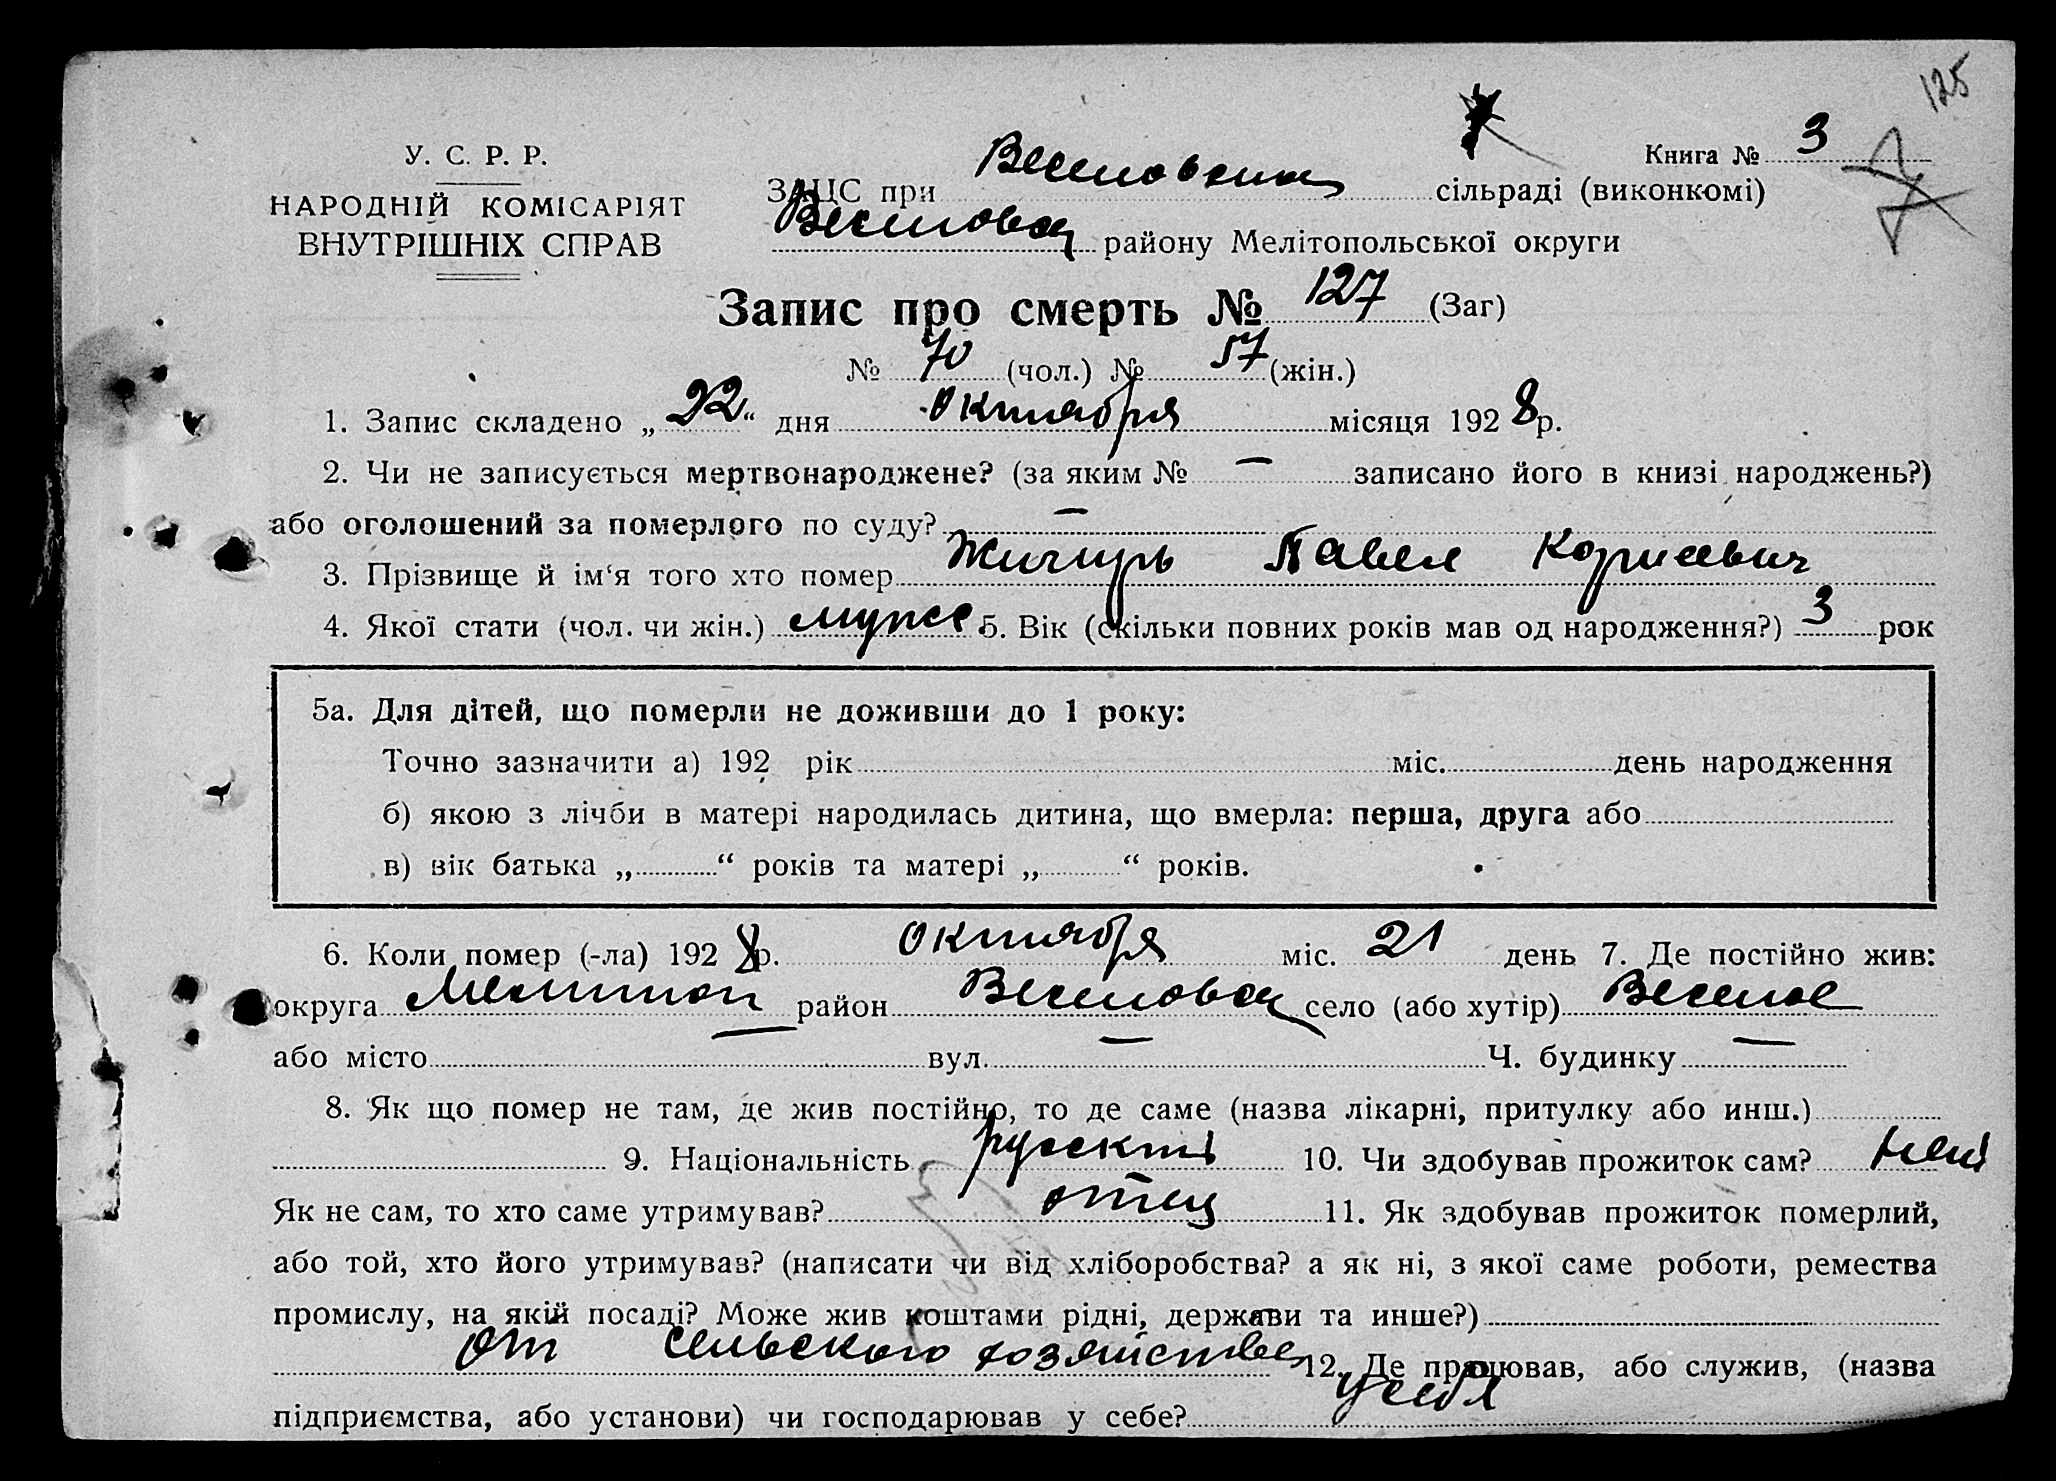 125
У. С. Р. Р.
НАРОДНІЙ КОМІСАРІЯТ
ВНУТРІШНІХ СПРАВ
Книга № 3
ЗАЦС при Веселовском сільраді (виконкомі)
Веселовск району Мелітопольської округи
Запис про смерть № 127 (Заг)
№ 70 (чол.) № 57 (жін.)
1. Запис складено „22“ дня октября місяця 1928 р.
2. Чи не записується мертвонароджене? (за яким № — записано його в книзі народжень?)
або оголошений за померлого по суду? —
3. Прізвище й ім‘я того хто помер Жигирь Павел
4. Якої стати (чол. чи жін.) мужс 5. Вік (скільки повних років мав од народження?) 3 рок
5а. Для дітей, що померли не доживши до 1 року:
Точно зазначити а) 192 рік міс. день народження
б) якою з лічби в матері народилась дитина, що вмерла: перша, друга або
в) вік батька „ “ років та матері „ “ років.
6. Коли помер (-ла) 1928 р. октября міс. 21 день 7. Де постійно жив:
округа Мелитоп район Веселовск село (або хутір) Веселое
або місто — вул. — Ч. будинку —
8. Як що помер не там, де жив постійно, то де саме (назва лікарні, притулку або инш.)
9. Національність русский 10. Чи здобував прожиток сам? нет
Як не сам, то хто саме утримував? отец 11. Як здобував прожиток померлий,
або той, хто його утримував? (написати чи від хліборобства? а як ні, з якої саме роботи, ремества
промислу, на якій посаді? Може жив коштами рідні, держави та инше?)
От сельского хозяйства 12. Де працював, або служив, (назва
підприємства, або установи) чи господарював у себе? у себя